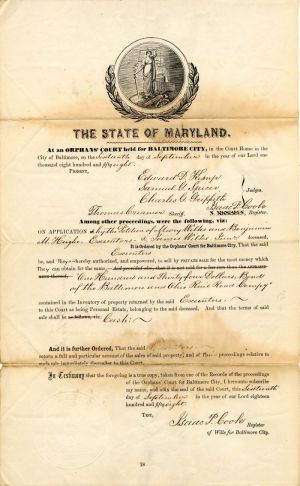 THE STATE OF MARYLAND.
At an ORPHANS' COURT held for BALTIMORE CITY, in the Court House in the
City of Baltimore, on the Sixteenth day of September in the year of our Lord one
thousand eight hundred and fifty eight.
PRESENT,
Edward D. Kemp
Samuel G. Spicer
Judges.
Charles G. Griffith
Thomas Creamer Sheriff
Isaac P. Cook
Register.
Among other proceedings, were the following, viz:
ON APPLICATION by the Petition of Mary Wilks and Benjamin
M Executors of James Wilks deceased,
It is Ordered by the Orphans' Court for Baltimore City, That the said
Executors
be, and they hereby authorized, and empowered, to sell by PRIVATE SALE for the most money which
They can obtain for the same
One Hundred and Thirty four Dollars, Bond
of the Baltimore and Ohio Rail Road Compy
contained in the Inventory of property returned by the said Executors:
to this Court as being Personal Estate, belonging to the said deceased. And that the terms of said
sale shall be as follows, viz: Cash:
And it is further Ordered, That the said
return a full and particular account of the sales of said property, and of proceedings relative to
such sale immediately thereafter to this Court.
In Testimony that the foregoing is a true copy, taken from one of the Records of the proceedings
of the Orphans' Court for Baltimore City, I hereunto subscribe
my name, and affix the seal of the said Court, this Sixteenth
day of September in the year of our Lord eighteen
hundred and fifty eight.
TEST,
Isaac P. Cook Register
of Wills for Baltimore City.